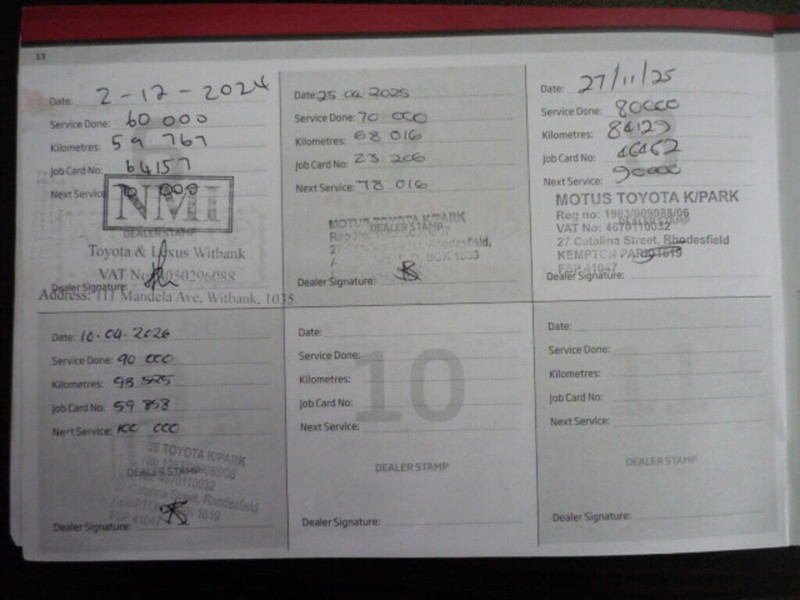 13
Date: 2-12-2024
Service Done: 60 000
Kilometres: 59 767
Job Card No: 64157
Next Service: 70 000
NMI
DEALER STAMP
Toyota & Lexus Witbank
VAT No 4050296088
Dealer Signature:
Address: 111 Mandela Ave, Witbank, 1035
Date: 25 04 2025
Service Done: 70 000
Kilometres: 68 016
Job Card No: 23 206
Next Service: 78 016
MOTUS TOYOTA K/PARK
DEALER STAMP
Reg No:
Rhodesfield,
Dealer Signature:
Date: 27/11/25
Service Done: 80000
Kilometres: 84129
Job Card No: 46462
Next Service: 90000
MOTUS TOYOTA K/PARK
Reg no: 1983/009088/06
DEALER STAMP
VAT No: 4670110032
27 Catalina Street, Rhodesfield
KEMPTON PARK 1619
FSP 41047
Dealer Signature:
Date: 10.04.2026
Service Done: 90 000
Kilometres: 93 525
Job Card No: 59 858
Next Service: 100 000
US TOYOTA K/PARK
DEALER STAMP
Catalina Street, Rhodesfield
1619
FSP 41047
Dealer Signature:
10
Date:
Service Done:
Kilometres:
Job Card No:
Next Service:
DEALER STAMP
Dealer Signature:
11
Date:
Service Done:
Kilometres:
Job Card No:
Next Service:
DEALER STAMP
Dealer Signature: